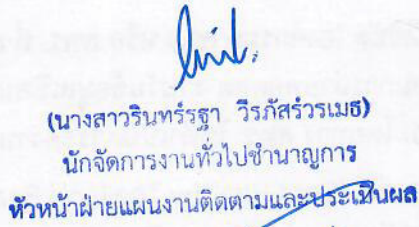 (นางสาวรินทร์รฐา วีรภัสร์วรเมธ)
นักจัดการงานทั่วไปชำนาญการ
หัวหน้าฝ่ายแผนงานติดตามและประเมินผล